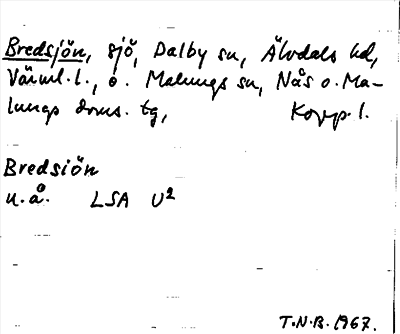 Bredsjön, sjö, Dalby sn, Älvdals hd,
Värml. l., o. Malungs sn, Nås o. Ma-
lungs doms. tg, Kopp. l.
Bredsiön
u.å. LSA U²
T.N.B. 1967.